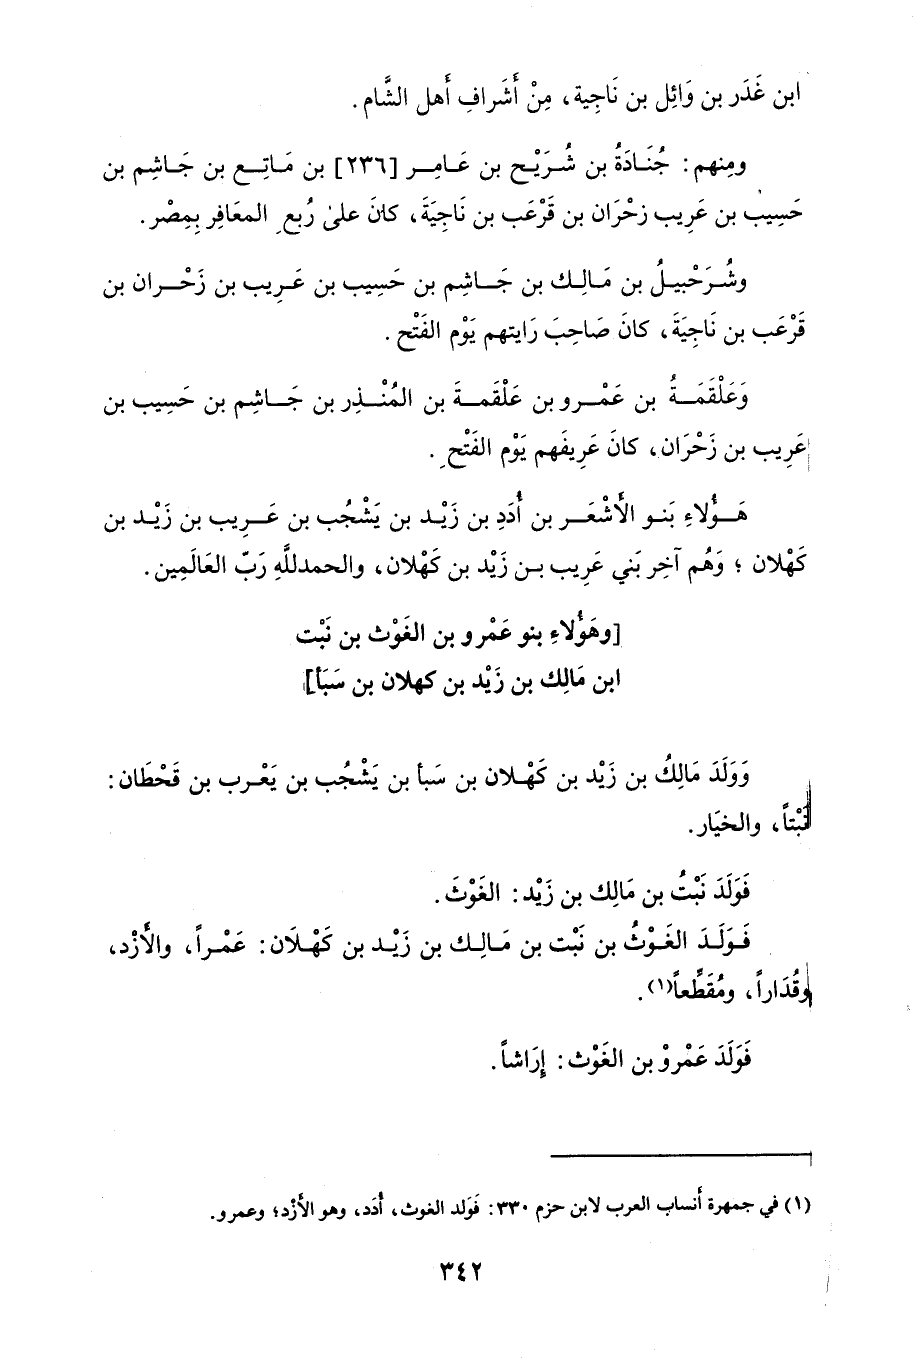 ابن غَدَر بن وَائِل بن نَاجِية، مِنْ أَشَرافِ أَهل الشَّام.
ومِنهم: جُنَادَةُ بن شُرَيْح بن عَامِر [٢٣٦] بن مَاتِع بن جَاشِم بن
حَسِيب بن عَرِيب زحْرَان بن قَرْعَب بن نَاجِيَةَ، كانَ علىٰ رُبع المعَافِر بِمِصْر.
وشُرَحْبيلُ بن مَالِك بن جَاشِم بن حَسِيب بن عَرِيب بن زَحْران بن
قَرْعَب بن نَاجِيَةَ، كانَ صَاحِبَ رَايتهم يَوْم الفَتْح.
وَعَلْقَمَةُ بن عَمْرو بن عَلْقَمةَ بن المُنْذِر بن جَاشِم بن حَسِيب بن
عَرِيب بن زَحْرَان، كانَ عَرِيفَهم يَوْم الفَتْح.
هَؤُلاءِ بَنو الأَشْعَر بن أُدَدِ بن زَيْد بن يَشْجُب بن عَرِيب بن زَيْد بن
كَهْلان ؛ وَهُم آخِر بَني عَرِيب بن زَيْد بن كَهْلان، والحمدللَّهِ رَبّ العَالَمِين.
[وهَؤُلاءِ بنو عَمْرو بن الغَوْث بن نَبْت
ابن مَالِك بن زَيْد بن كهلان بن سَبَأ]
وَوَلَدَ مَالِكُ بن زَيْد بن كَهْلان بن سَبأ بن يَشْجُب بن يَعْرب بن قَحْطَان:
نَبْتاً، والخيَار.
فَوَلَدَ نَبْتُ بن مَالِك بن زَيْد: الغَوْثَ.
فَولَدَ الغَوْثُ بن نَبْت بن مَالِك بن زَيْد بن كَهْلَان: عَمْراً، والأَزْد،
وقُدَاراً، ومُقَطِّعاً(١).
فَوَلَدَ عَمْروْ بن الغَوْث: إرَاشاً.
(١) في جمهرة أنساب العرب لابن حزم ٣٣٠: فَوَلد الغوث، أُدَد، وهو الأَزْد؛ وعمرو.
٣٤٢